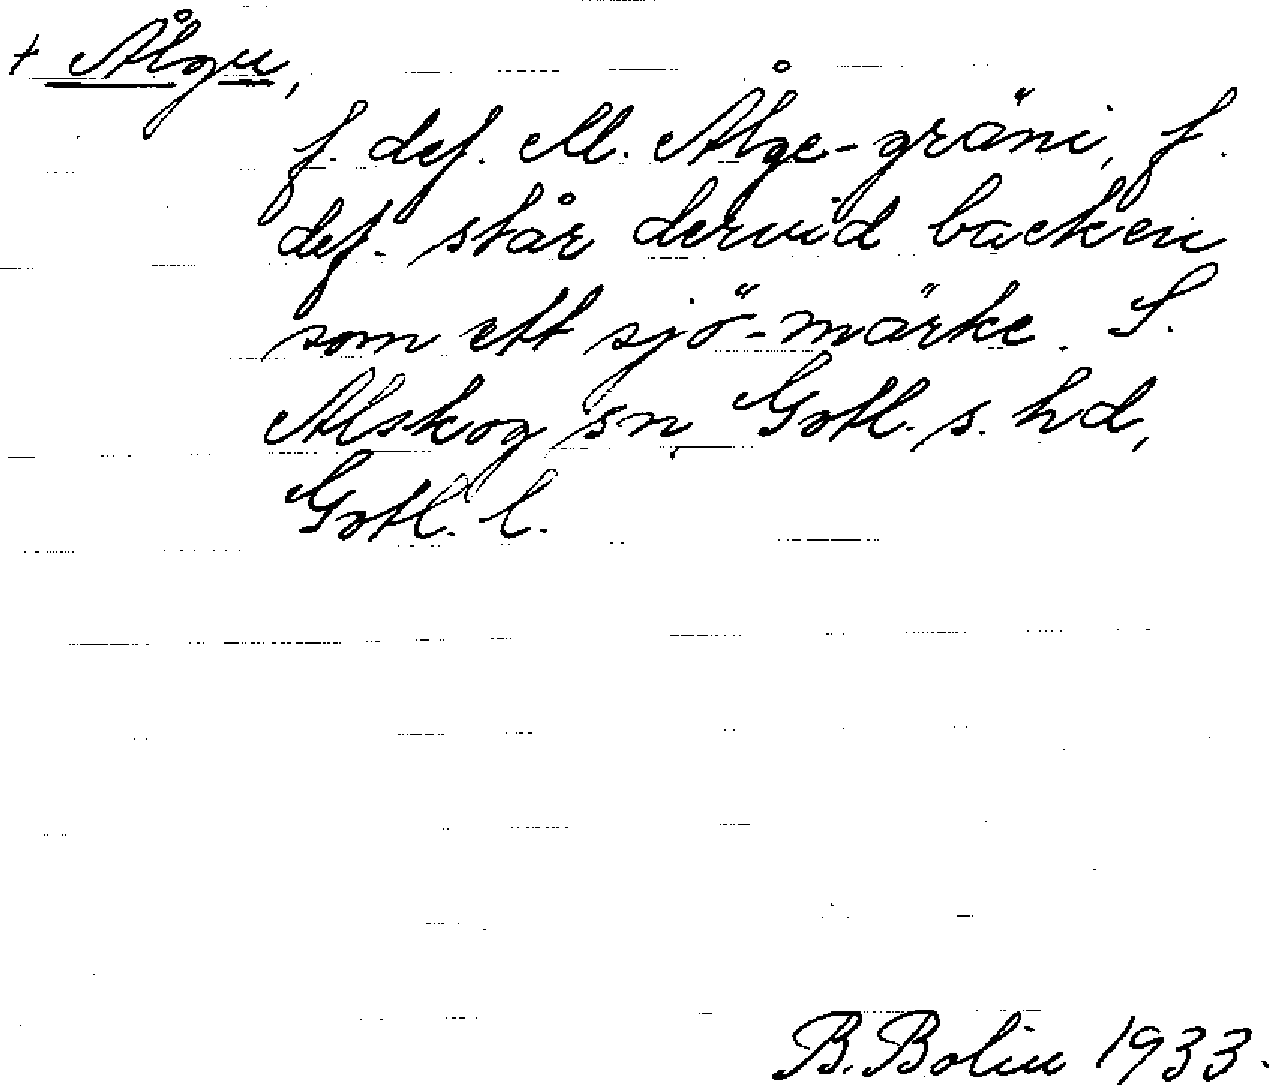 + Ålgu,
f. def. Al. Ålge-gräni, f.
def. står dervid backen
som ett sjö-märke. S.
Alskog sn, Gotl. s. hd,
Gotl. l.
B. Bolin 1933.